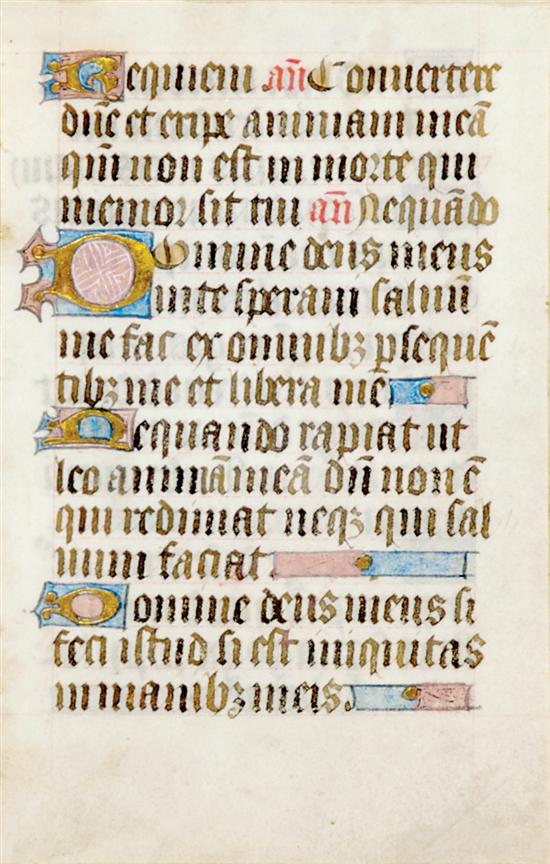 Requiem an̄ Conuertere
dn̄e et eripe animam meā
qm̄ non est in morte qui
memor sit tui an̄ Nequādo
Domine deus meus
in te speraui saluū
me fac ex omnibꝫ ꝑsequē
tibꝫ me et libera me
Nequando rapiat ut
leo animā meā dū non ē
qui redimat neqꝫ qui sal
uum faciat
Domine deus meus si
feci istud si est iniquitas
in manibꝫ meis.